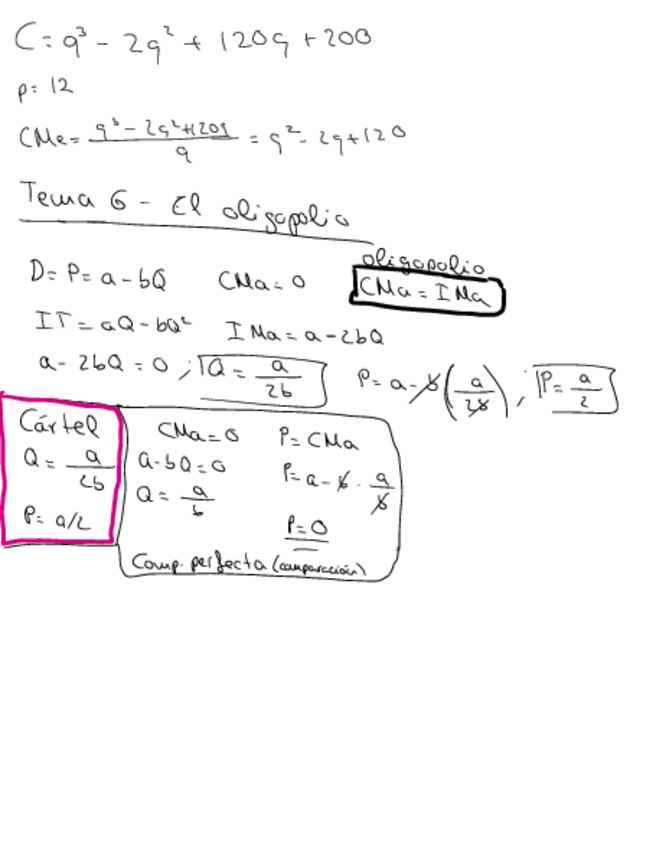 C = q³ - 2q² + 120q + 200
p = 12
CMe = (q³ - 2q² + 120q) / q = q² - 2q + 120
Tema 6 - El oligopolio
D = P = a - bQ CMa = 0 oligopolio CMa = IMa
IT = aQ - bQ² IMa = a - 2bQ
a - 2bQ = 0 ; Q = a/2b P = a - b(a/2b), ; P = a/2
Cártel
Q = a/2b
P = a/2
CMa = 0 P = CMa
a - bQ = 0 P = a - b · a/b
Q = a/b
P = 0
Comp. perfecta (comparación)